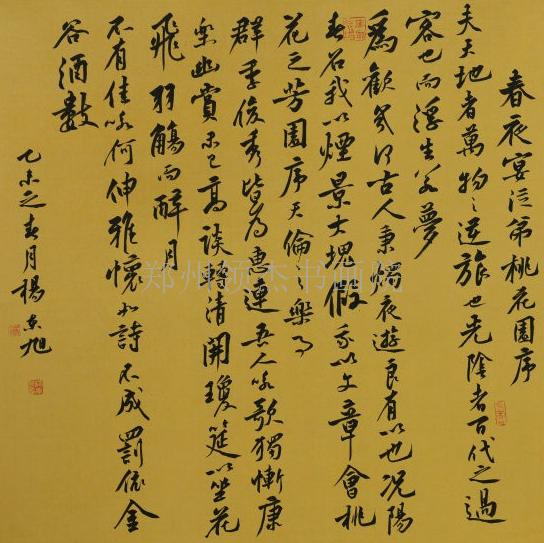 春夜宴從弟桃花園序
夫天地者萬物〻逆旅也光陰者百代之過
客也而浮生若夢
為歡幾何古人秉燭夜遊良有以也況陽
春召我以煙景大塊假我以文章會桃
花之芳園序天倫之樂事
群季俊秀皆為惠連吾人詠歌獨慚康
樂幽賞未已高談轉清開瓊筵以坐花
飛羽觴而醉月
不有佳詠何伸雅懷如詩不成罰依金
谷酒數
乙未之春月楊東旭
郑州领杰书画